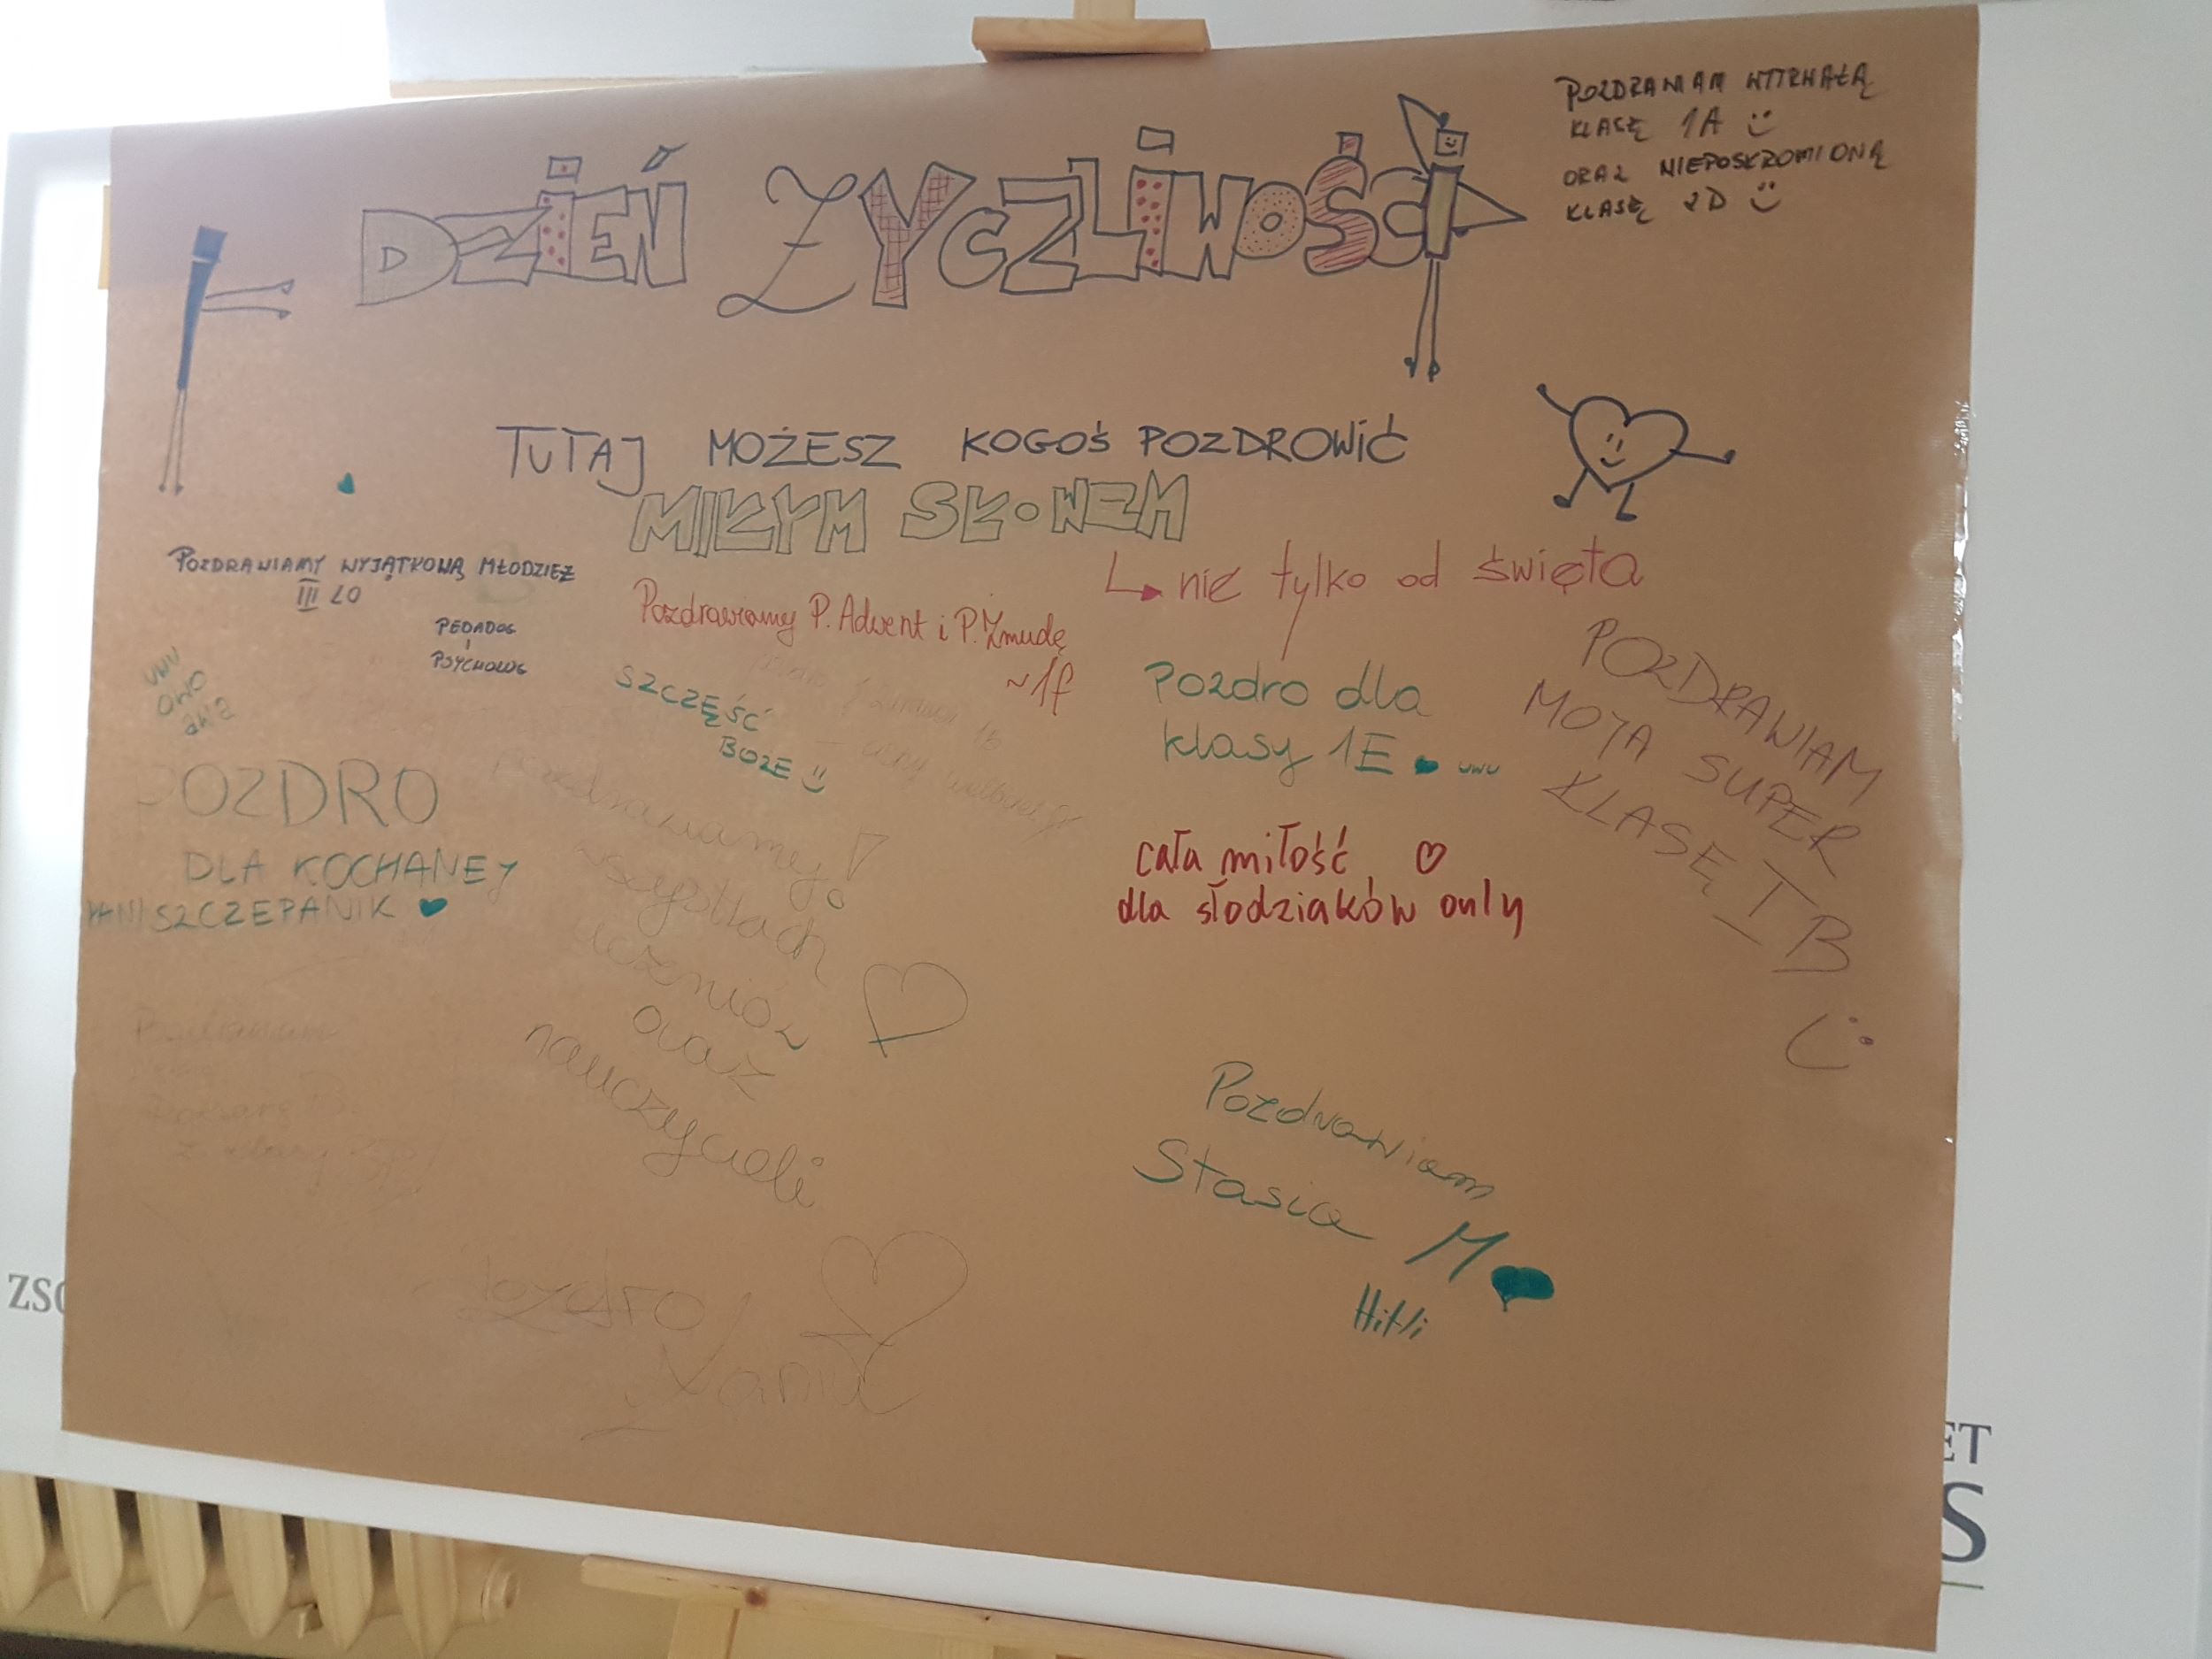 DZIEŃ ŻYCZLIWOŚCI
POZDRAWIAM WYTRWAŁĄ
KLASĘ 1A
ORAZ NIEPOSKROMIONĄ
KLASĘ 2D
TUTAJ MOŻESZ KOGOŚ POZDROWIĆ
MIŁYM SŁOWEM
nie tylko od święta
POZDRAWIAMY WYJĄTKOWĄ MŁODZIEŻ
III LO
PEDAGOG
i
PSYCHOLOG
Pozdrawiamy P. Advent i P. Żmudę
~1f
SZCZĘŚĆ
BOŻE
Pozdro dla
klasy 1E uwu
POZDRAWIAM
MOJA SUPER
KLASĘ TB
UWU
OWO
POZDRO
DLA KOCHANEJ
PANI SZCZEPANIK
pozdrawiamy!
wszystkich
uczniów
oraz
nauczycieli
cała miłość
dla słodziaków only
Pozdrawiam
Stasia M
pozdro
ZSO
ET
S